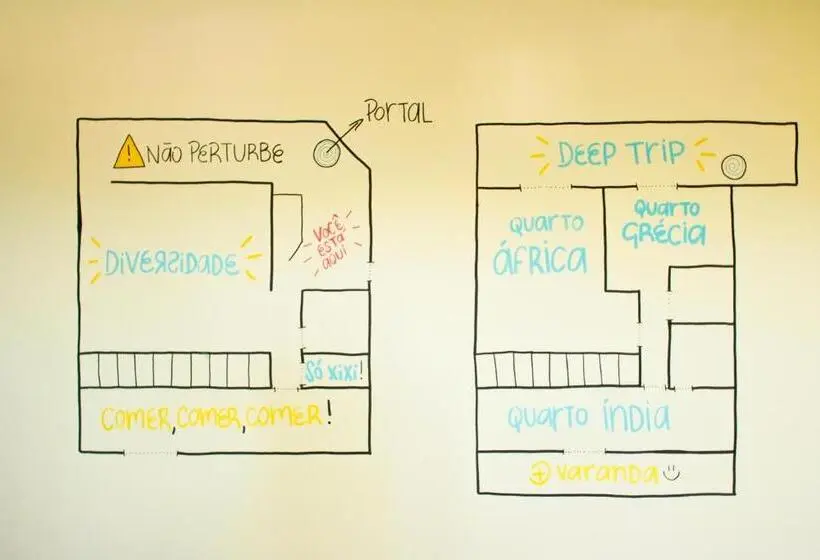 PORTAL
! NÃO PERTURBE
DIVERSIDADE
VOCÊ
ESTÁ
AQUI
SÓ XIXI!
COMER, COMER, COMER!
DEEP TRIP
QUARTO
ÁFRICA
QUARTO
GRÉCIA
QUARTO ÍNDIA
+ VARANDA